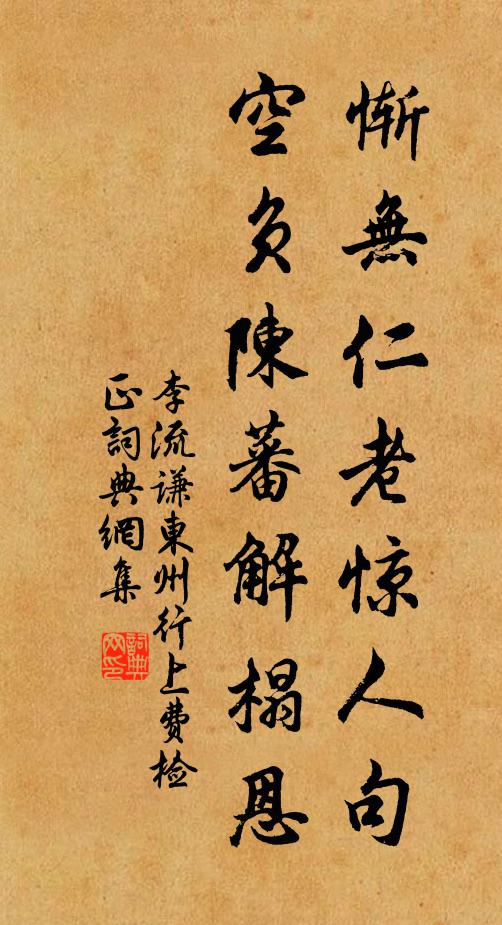 慚無仁老惊人句
空負陳蕃解榻恩
李流謙東州行上費檢
正詞典網集
詞典
网印